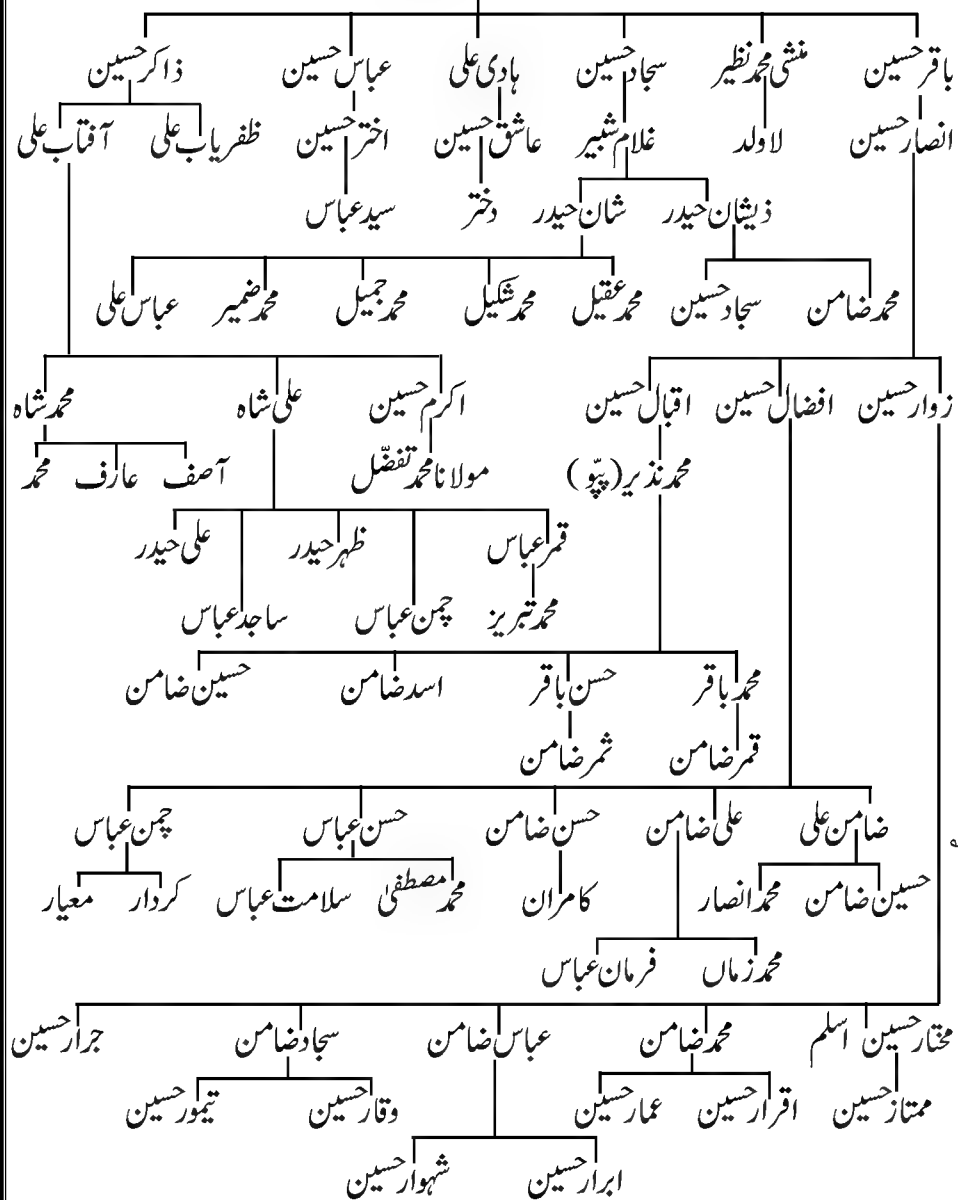 باقر حسین منشی محمد نظیر سجاد حسین ہادی علی عباس حسین ذاکر حسین
انصار حسین لاولد غلام شبیر عاشق حسین اختر حسین ظفریاب علی آفتاب علی
ذیشان حیدر شان حیدر دختر سید عباس
محمد ضامن سجاد حسین محمد عقیل محمد شکیل محمد جمیل محمد ضمیر عباس علی
زوار حسین افضال حسین اقبال حسین اکرم حسین علی شاہ محمد شاہ
محمد نذیر (پپّو) مولانا محمد تفضّل آصف عارف محمد
قمر عباس ظہر حیدر علی حیدر
محمد تبریز چمن عباس ساجد عباس
محمد باقر حسن باقر اسد ضامن حسین ضامن
قمر ضامن ثمر ضامن
ضامن علی علی ضامن حسن ضامن حسن عباس چمن عباس
حسین ضامن محمد انصار کامران محمد مصطفیٰ سلامت عباس کردار معیار
محمد زماں فرمان عباس
مختار حسین اسلم محمد ضامن عباس ضامن سجاد ضامن جرار حسین
ممتاز حسین اقرار حسین عمار حسین وقار حسین تیمور حسین
ابرار حسین شہوار حسین